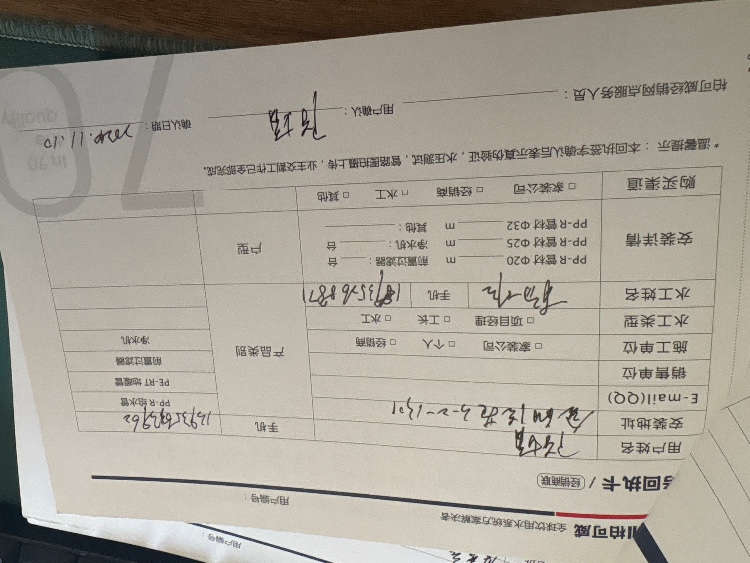 柏可威 全球饮用水系统方案解决者
用户编号：
回执卡 / 经销商联
用户编号：
用户姓名
手机
安装地址 3-2-1301
E-mail(QQ)
销售单位
施工单位 □ 家装公司 □ 个人 □ 经销商
水工类型 □ 项目经理 □ 工长 □ 水工
水工姓名 手机
产品类别
PP-R 给水管
PE-RT 地暖管
前置过滤器
净水机
安装详情
PP-R 管材 Φ20 m 前置过滤器： 台
PP-R 管材 Φ25 m 净水机： 台
PP-R 管材 Φ32 m 其他：
户型
购买渠道 □ 家装公司 □ 经销商 □ 水工 □ 其他
* 温馨提示：本回执签字确认后表示真伪验证，水压测试，管路图拍摄上传，业主交割工作已全部完成。
柏可威经销网点服务人员： 用户确认： 确认日期：2020.11.10
70
in 70
quality